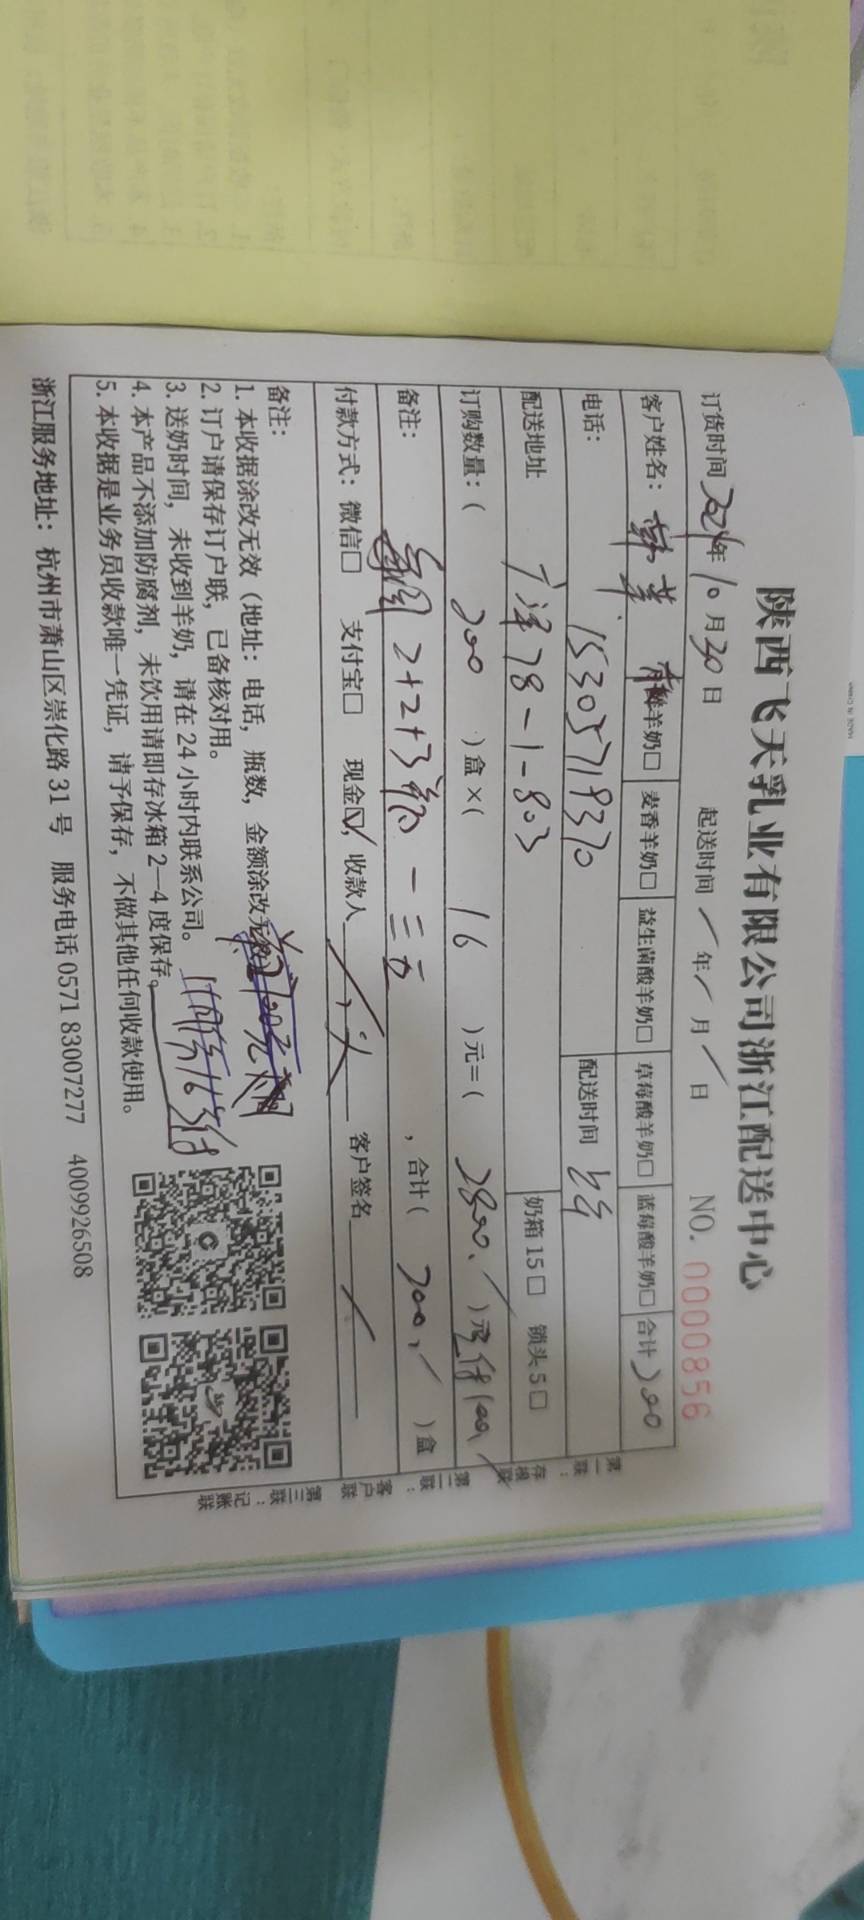 陕西飞天乳业有限公司浙江配送中心
订货时间 2024年10月30日 起送时间 / 年 / 月 / 日 NO. 0000856
客户姓名： 鲜羊奶□ 麦香羊奶□ 益生菌酸羊奶□ 草莓酸羊奶□ 蓝莓酸羊奶□ 合计 200
电话： 15305719370 配送时间
配送地址 78-1-803 奶箱 15□ 锁头 5□
订购数量：（ 200 ）盒×（ 16 ）元=（ 2800. ）元
备注： 每周 2+2+3 一三五 ，合计（ 200. ）盒
付款方式：微信□ 支付宝□ 现金☑ 收款人 客户签名 /
备注：
1. 本收据涂改无效（地址：电话，瓶数，金额涂改无效）
2. 订户请保存订户联，已备核对用。
3. 送奶时间，未收到羊奶，请在 24 小时内联系公司。
4. 本产品不添加防腐剂，未饮用请即存冰箱 2—4 度保存。
5. 本收据是业务员收款唯一凭证，请予保存，不做其他任何收款使用。
浙江服务地址：杭州市萧山区崇化路 31 号 服务电话 0571 83007277 4009926508
第一联：存根联
第二联：客户联
第三联：记账联